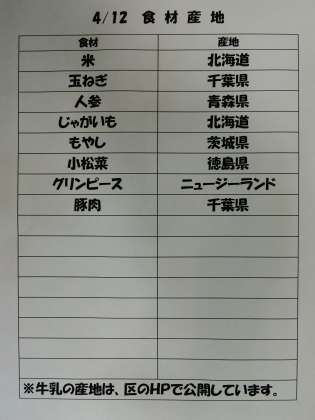 4/12 食材産地
食材 産地
米 北海道
玉ねぎ 千葉県
人参 青森県
じゃがいも 北海道
もやし 茨城県
小松菜 徳島県
グリンピース ニュージーランド
豚肉 千葉県
※牛乳の産地は、区のHPで公開しています。